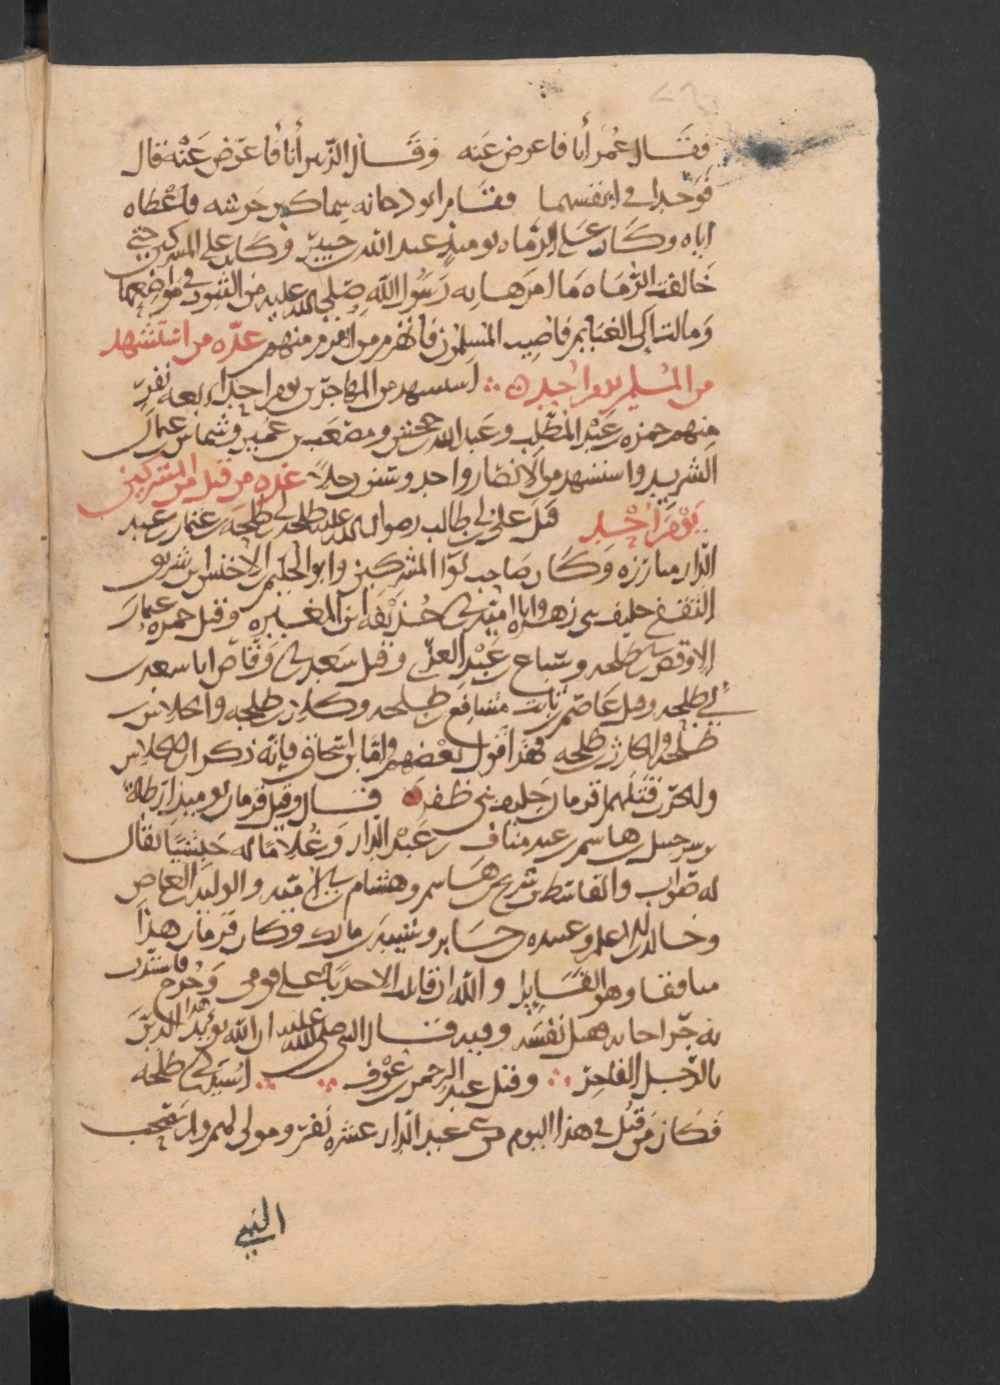 فقال عمر أنا فاعرض عنه وقال الزبير أنا فاعرض عنه قال
فوجدا في انفسهما فقام ابو دجانه سماك بن خرشه فاعطاه
اياه وكان على الرماه يوميذ عبد الله بن جبير وكان على المشركين حتى
خالفت الرماه ما امرهما به رسول الله صلى الله عليه من الثبوت في مواضعهما
ومالت الى الغنايم فاصيب المسلمون فانهزم من انهزم منهم عده من استشهد
من المسلمين يوم احد استشهد من المهاجرين يوم احد اربعه نفر
منهم حمزه بن عبد المطلب وعبد الله بن جحش ومصعب بن عمير وشماس بن عثمان
الشريد واستشهد من الانصار واحد وستون رجلا عده من قتل من المشركين
يوم احد قتل علي بن ابي طالب رضوان الله عليه طلحه بن ابي طلحه بن عثمان بن عبد
الدار مبارزه وكان صاحب لوا المشركين وابو الحكم بن الاخنس بن شريق
الثقفي حليف بني زهره وابا اميه بن ابي حذيفه ابن المغيره وقتل حمزه عثمان
بن طلحه وسباع بن عبد العزى وقتل سعد بن ابي وقاص ابا سعد بن
ابي طلحه وقتل عاصم بن ثابت مسافع بن طلحه وكلاب بن طلحه والجلاس بن
طلحه والحارث بن طلحه فهذا قول بعضهم واما ابن اسحاق فانه ذكر ان الجلاس
قتلهما قزمان حليف بني ظفر قال وقتل قزمان يوميذ ارطاه
بن شرحبيل بن هاشم بن عبد مناف بن عبد الدار وغلاما له حبشيا يقال
له صواب والقاسط بن شريح بن هاشم وهشام بن ابي اميه والوليد بن العاص
وخالد بن الاعلم وعبيده بن جابر وشيبه بن مالك وكان قزمان هذا
منافقا وهو القايل والله ان قاتلت الا حدبا على قومي وجرح فاشتدت
به جراحاته فقتل نفسه وفيه قال النبي صلى الله عليه ان الله يؤيد هذا الدين
بالرجل الفاجر وقتل عبد الرحمن بن عوف اسيد بن ابي طلحه
فكان من قتل في هذا اليوم من بني عبد الدار عشره نفر ومولى لهم وارتحب
النبي